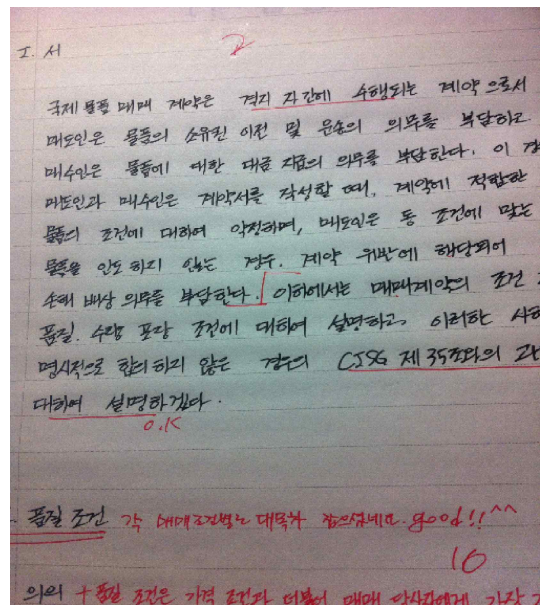 I. 서
국제 물품 매매 계약은 격지 자간에 수행되는 계약으로서
매도인은 물품의 소유권 이전 및 운송의 의무를 부담하고
매수인은 물품에 대한 대금 지급의 의무를 부담한다. 이 경
매도인과 매수인은 계약서를 작성할 때, 계약에 적합한
물품의 조건에 대하여 약정하며, 매도인은 동 조건에 맞는
물품을 인도 하지 않는 경우. 계약 위반에 해당되어
손해 배상 의무를 부담한다. 이하에서는 매매계약의 조건
품질. 수량 포장 조건에 대하여 설명하고, 이러한 사
명시적으로 합의 하지 않은 경우의 CISG 제 35조와의 관
대하여 설명하겠다.
O.K
품질 조건 각 매매조건별로 대목차 잡으셨네요. good!! ^^
10
의의 + 품질 조건은 가격 조건과 더불어 매매 당사자에게 가장